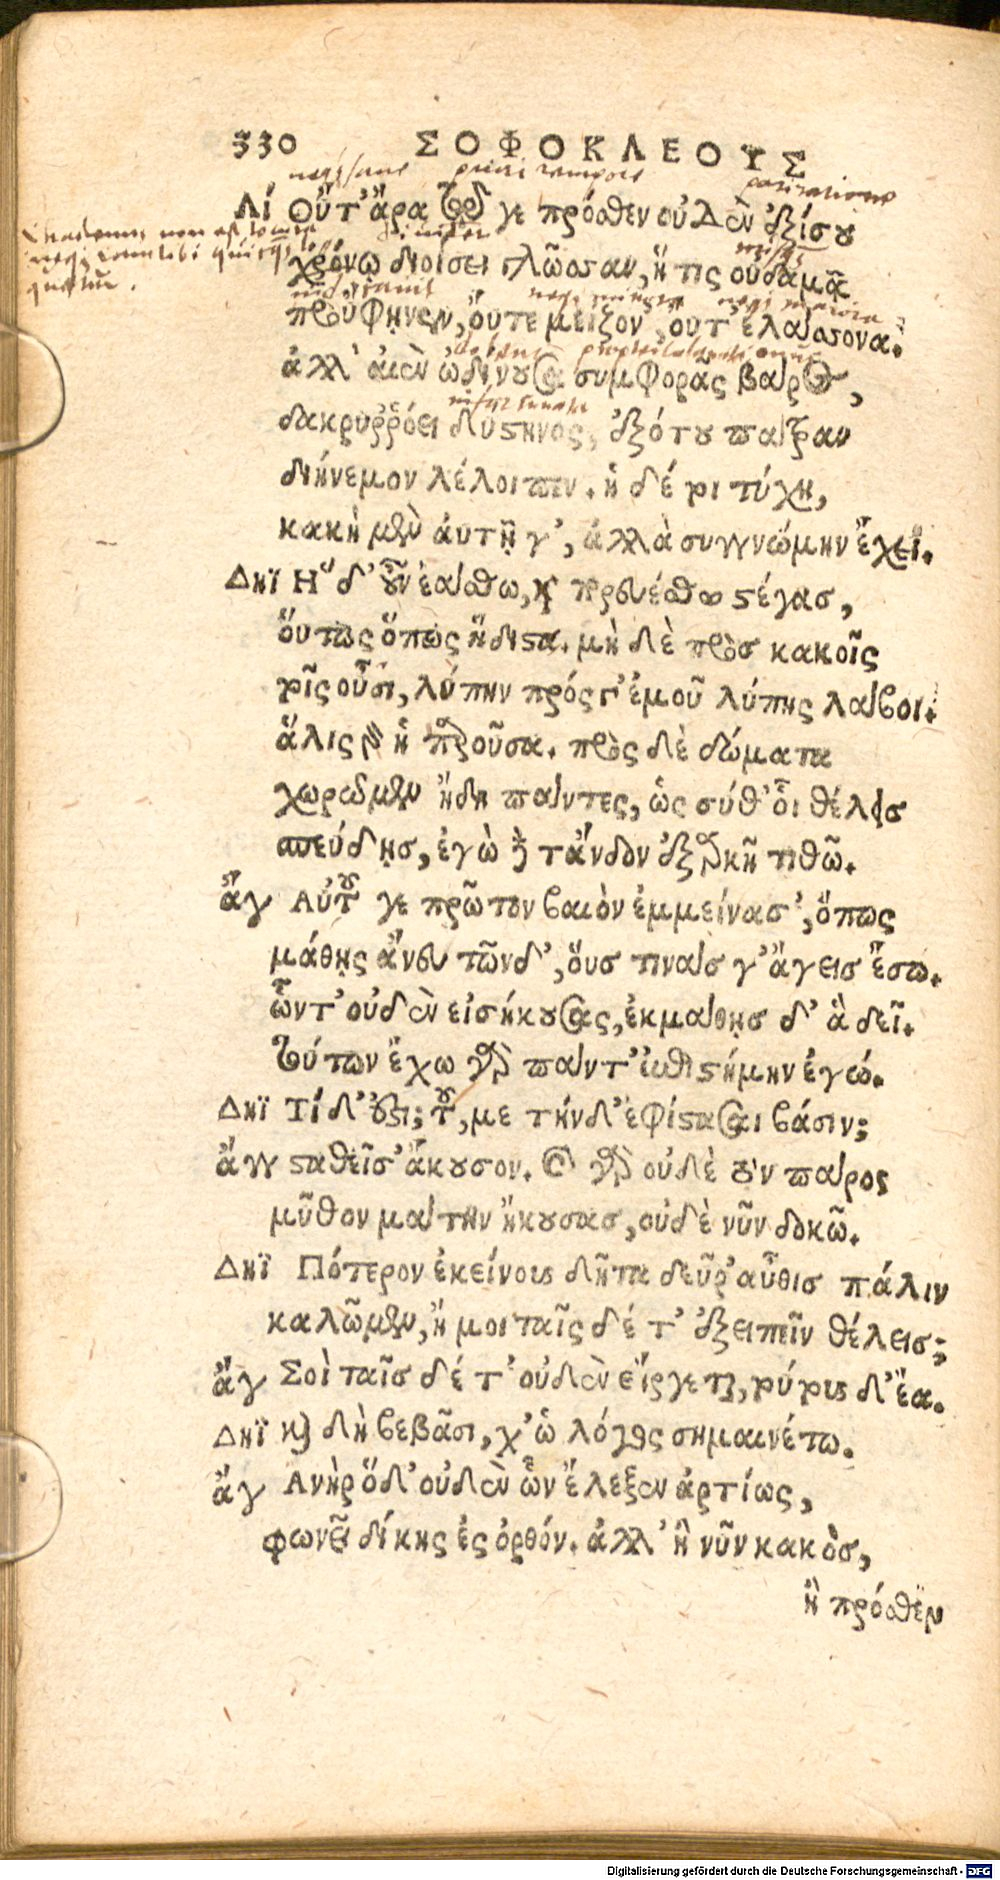 330 ΣΟΦΟΚΛΕΟΥΣ
Λί Οὔτ' ἄρα τῷ γε πρόσθεν οὐδὲν ἐξίσου
χρόνῳ διοίσει γλῶσσαν, ἥ τις οὐδαμᾶ
προὔφηνεν, οὔτε μείζον', οὔτ' ἐλάσσονα.
ἀλλ' αἰὲν ὠδίνουσα συμφορᾶς βάρος,
δακρυῤῥόει δύστηνος, ἐξότου πάτραν
διήνεμον λέλοιπεν. ἡ δέ τοι τύχη,
κακὴ μὲν αὐτῇ γ', ἀλλὰ συγγνώμην ἔχει.
Δηϊ Η δ' οὖν ἐάσθω, καὶ πορευέσθω στέγασ,
οὕτως ὅπως ἥδιστα. μὴ δὲ πρὸσ κακοῖς
τοῖς οὖσι, λύπην πρός γ' ἐμοῦ λύπης λάβοι.
ἅλις γὰρ ἡ παροῦσα. πρὸς δὲ δώματα
χωρῶμεν ἤδη πάντες, ὡς σύθ' οἷ θέλεισ
σπεύδῃσ, ἐγὼ δὲ τἄνδον ἐξαρκῆ τιθῶ.
ἄγ Αὐτοῦ γε πρῶτον βαιὸν ἐμμείνασ', ὅπως
μάθῃς ἄνευ τῶνδ', οὕσ τινάσ γ' ἄγεισ ἔσω.
ὧν τ' οὐδὲν εἰσήκουσας, ἐκμάθῃσ δ' ἃ δεῖ.
τούτων ἔχω γὰρ πάντ' ἐπιστήμην ἐγώ.
Δηϊ Τί δ' ἔστι; τοῦ, με τήνδ' ἐφίστασαι βάσιν;
ἄγγ σταθεῖσ' ἄκουσον. καὶ γὰρ οὐδὲ τὸν πάρος
μῦθον μάτην ἤκουσασ, οὐδὲ νῦν δοκῶ.
Δηϊ Πότερον ἐκείνους δῆτα δεῦρ' αὖθισ πάλιν
καλῶμεν, ἢ μοι ταῖς δέ τ' ἐξειπεῖν θέλεισ;
ἄγ Σοὶ ταῖσ δέ τ' οὐδὲν εἴργεται, τούτους δ' ἔα.
Δηϊ καὶ δὴ βεβᾶσι, χ' ὡ λόγος σημαινέτω.
ἄγ Ανὴρ ὅδ' οὐδὲν ὧν ἔλεξεν ἀρτίως,
φωνεῖ δίκης ἐς ὀρθόν. ἀλλ' ἢ νῦν κακὸσ,
ἢ πρόσθεν
Digitalisierung gefördert durch die Deutsche Forschungsgemeinschaft - DFG